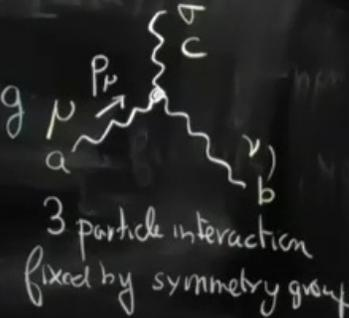 σ
c
Pμ
g μ
a
ν)
b
3 particle interaction
fixed by symmetry group